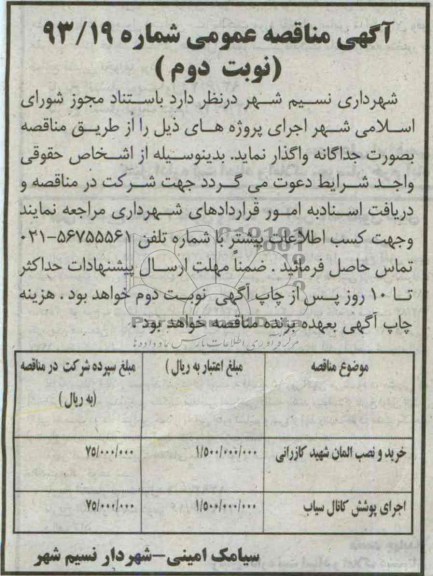 آگهی مناقصه عمومی شماره ۹۳/۱۹
(نوبت دوم)
شهرداری نسیم شهر درنظر دارد باستناد مجوز شورای
اسلامی شهر اجرای پروژه های ذیل را از طریق مناقصه
بصورت جداگانه واگذار نماید. بدینوسیله از اشخاص حقوقی
واجد شرایط دعوت می گردد جهت شرکت در مناقصه و
دریافت اسنادبه امور قراردادهای شهرداری مراجعه نمایند
وجهت کسب اطلاعات بیشتر با شماره تلفن ۵۶۷۵۵۵۶۱-۰۲۱
تماس حاصل فرمائید . ضمناً مهلت ارسال پیشنهادات حداکثر
تا ۱۰ روز پس از چاپ آگهی نوبت دوم خواهد بود . هزینه
چاپ آگهی بعهده برنده مناقصه خواهد بود.
موضوع مناقصه مبلغ اعتبار به ریال ) مبلغ سپرده شرکت در مناقصه
(به ریال )
خرید و نصب المان شهید کازرانی ۱/۵۰۰/۰۰۰/۰۰۰ ۷۵/۰۰۰/۰۰۰
اجرای پوشش کانال سیاب ۱/۵۰۰/۰۰۰/۰۰۰ ۷۵/۰۰۰/۰۰۰
سیامک امینی-شهردار نسیم شهر